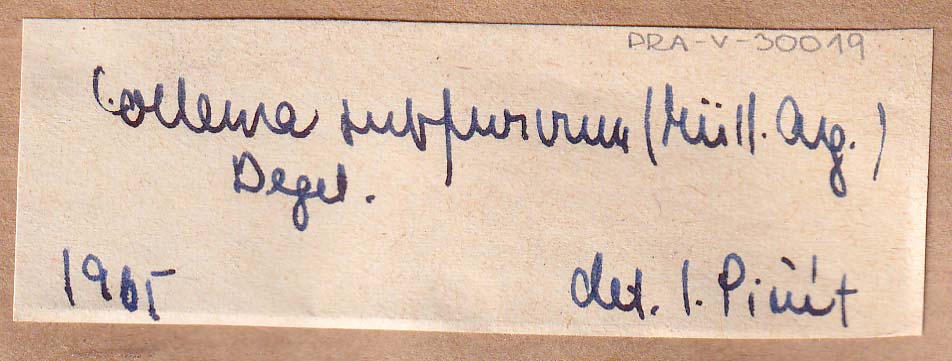 PRA-V-30019
Collema subfurvum (Müll. Arg.)
Degel.
1965 det. I. Pišút